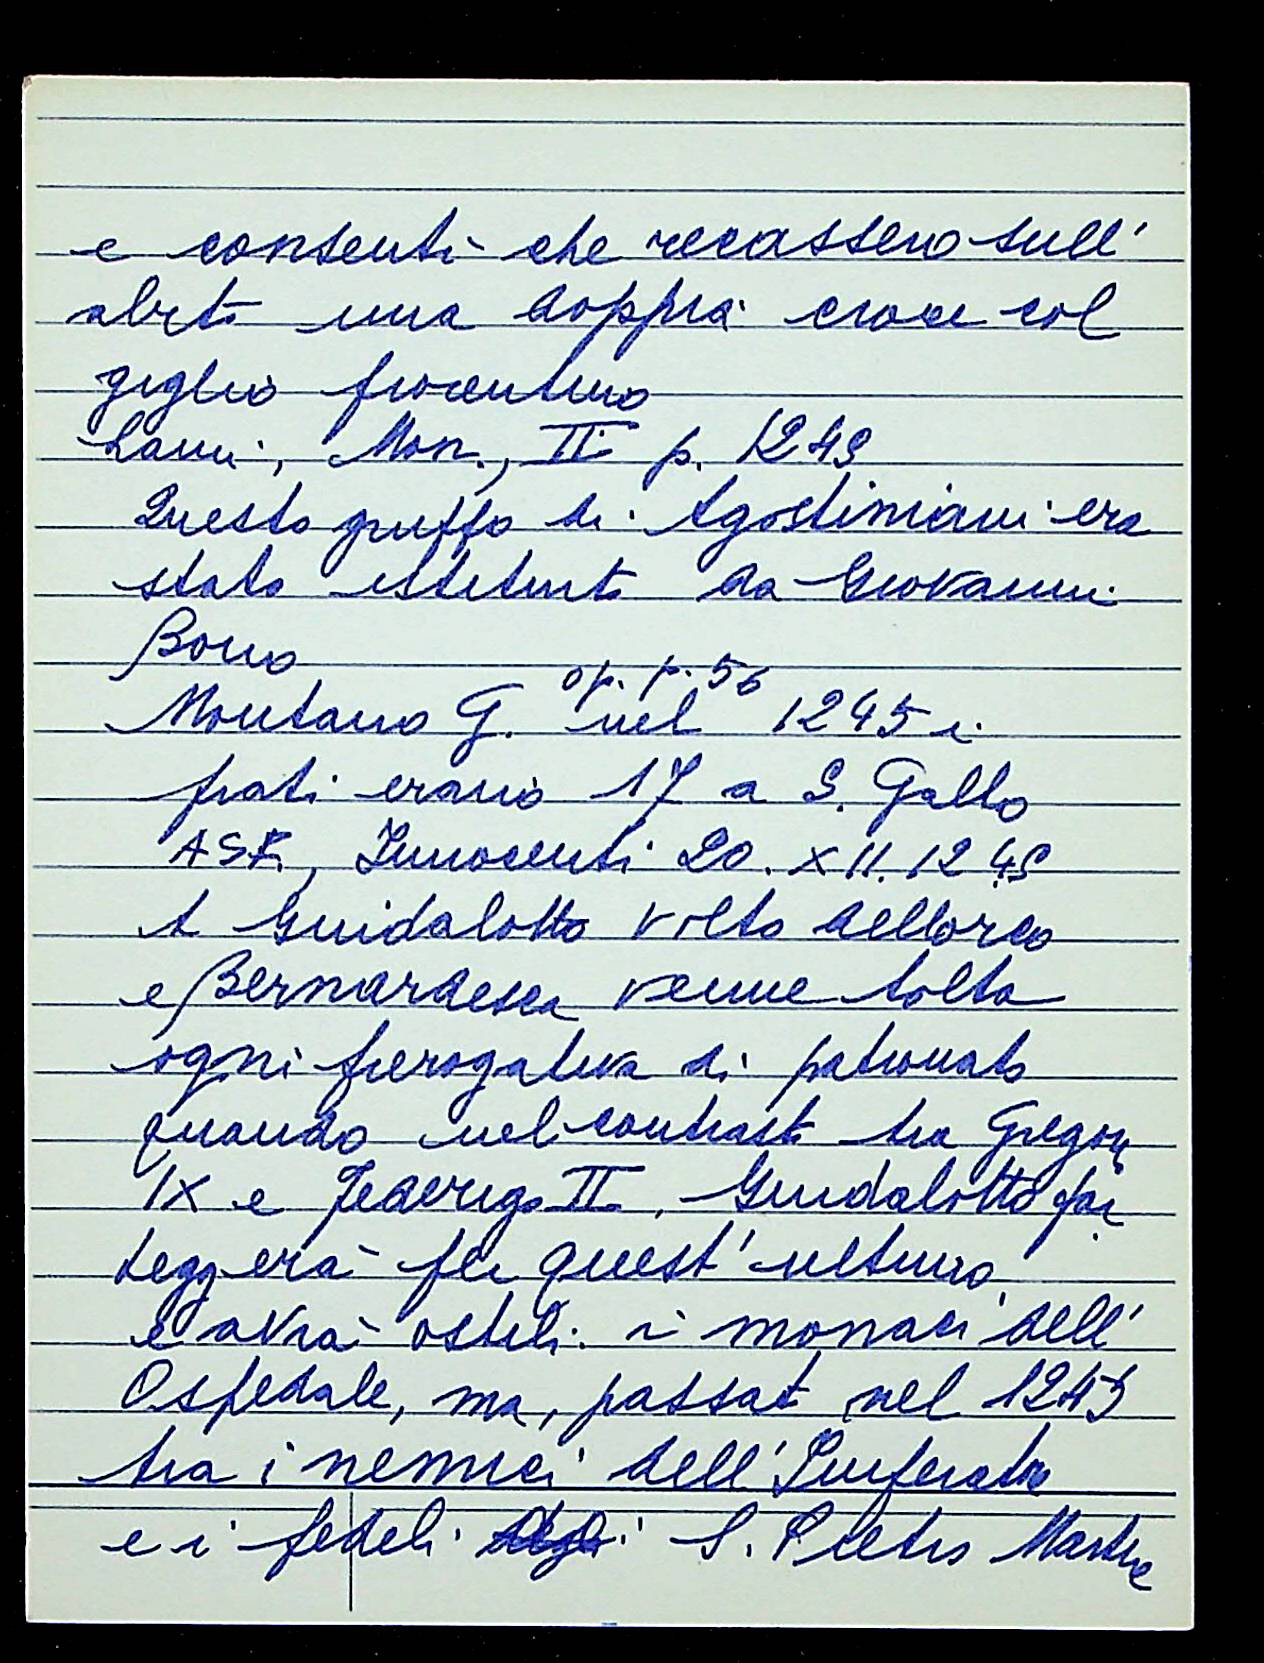 e consentì che recassero sull'
abito una doppia croce col
giglio fiorentino
Lami, Mon., II p. 1249
Questo gruppo di Agostiniani era
stato istituito da Giovanni
Bono
op. p. 56
Montano G. nel 1245 i
frati erano 17 a S. Gallo
ASF, Innocenti 20.XII.1249
A Guidalotto Volto dellorco
e Bernardesca venne tolta
ogni prerogativa di patronato
quando nel contrasto tra Gregorio
IX e Federigo II, Guidalotto par
teggerà per quest'ultimo
e avrà ostili i monaci dell'
Ospedale, ma, passato nel 1245
tra i nemici dell'Imperatore
e i fedeli di S. Pietro Martire